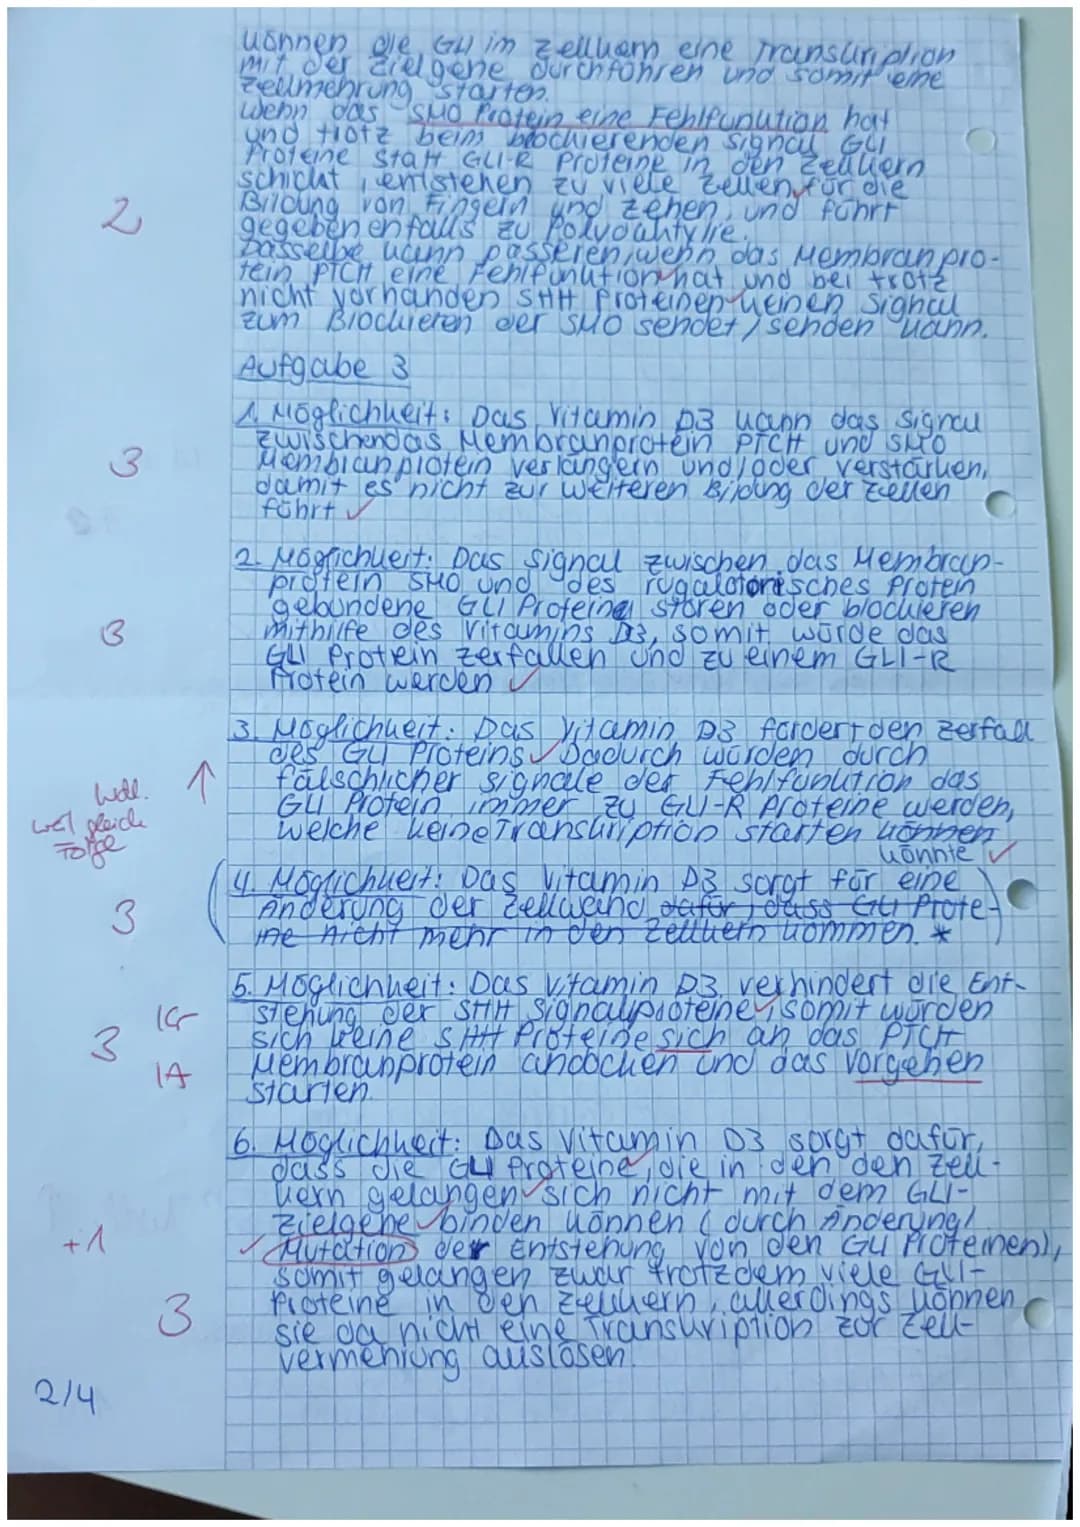 können die GLI im Zellkern eine Transkription
mit der Zielgene durchführen und somit eine
Zellmehrung starten.
Wenn das SMO Protein eine Fehlfunktion hat
und trotz beim blockierenden Signal GLI
Proteine statt GLI-R Proteine in den Zellkern
schickt, entstehen zu viele Zellen für die
Bildung von Fingern und Zehen, und führt
2
gegebenenfalls zu Polydaktylie.
Dasselbe kann passieren, wenn das Membranpro-
tein PTCH eine Fehlfunktion hat und bei trotz
nicht vorhanden SHH Proteinen keinen Signal
zum Blockieren der SMO sendet/senden kann.
Aufgabe 3
1. Möglichkeit: Das Vitamin D3 kann das Signal
zwischen das Membranprotein PTCH und SMO
3
Membranprotein verlängern und/oder verstärken,
damit es nicht zur weiteren Bildung der Zellen
führt ✓
2. Möglichkeit: Das Signal zwischen das Membran-
protein SMO und des
gebundene GLI Proteine stören oder blockieren
3
mithilfe des Vitamins D3, somit würde das
GLI Protein zerfallen und zu einem GLI-R
Protein werden ✓
3. Möglichkeit: Das Vitamin D3 fördert den Zerfall
des GLI Proteins. Dadurch würden durch
fälschlicher Signale der Fehlfunktion das
GLI Protein immer zu GLI-R Proteine werden,
welche keine Transkription starten können
könnte ✓
↑
Wdl.
weil gleiche
Folge
4. Möglichkeit: Das Vitamin D3 sorgt für eine
Änderung der Zellwand dafür, dass GLI Prote-
ine nicht mehr in den Zellkern kommen. *
3
5. Möglichkeit: Das Vitamin D3 verhindert die Ent-
stehung der SHH Signalproteine, somit würden
sich keine SHH Proteine sich an das PTCH
Membranprotein andocken und das Vorgehen
starten.
3
1Gr
1A
6. Möglichkeit: Das Vitamin D3 sorgt dafür,
dass die GLI Proteine, die in den den Zell-
kern gelangen sich nicht mit dem GLI-
Zielgene binden können (durch Änderung/
Mutation der Entstehung von den GLI Proteinen),
somit gelangen zwar trotzdem viele GLI-
Proteine in den Zellkern, allerdings können
sie da nicht eine Transkription zur Zell-
vermehrung auslösen.
+1
3
2/4